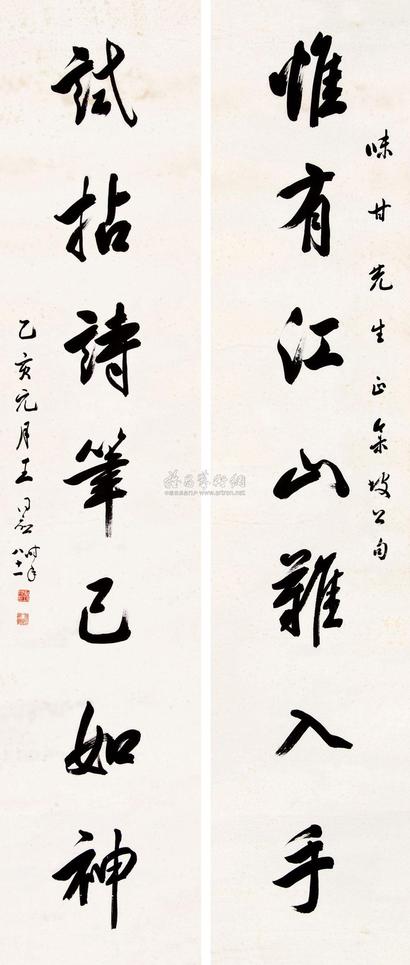 味甘先生正集坡公句
惟有江山難入手
試拈詩筆已如神
乙亥元月王同愈時年
八十一
雅昌藝術網
www.artron.net